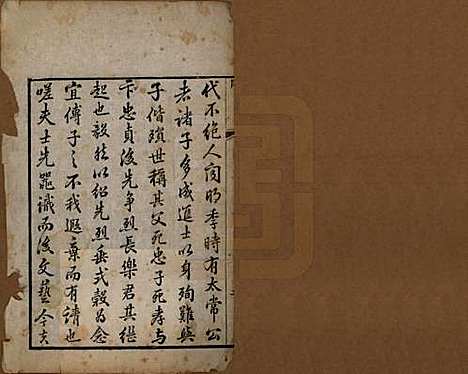 代不絕人間明季時有太常公
者諸子多成進士以身殉難與
子偕殞世稱其父死忠子死孝与
卞忠貞後先爭烈長樂君其継
起也毅然以紹先烈垂式穀為念
宜傅子之不我遐棄而有請也
嗟夫士先器識而後文藝今夫